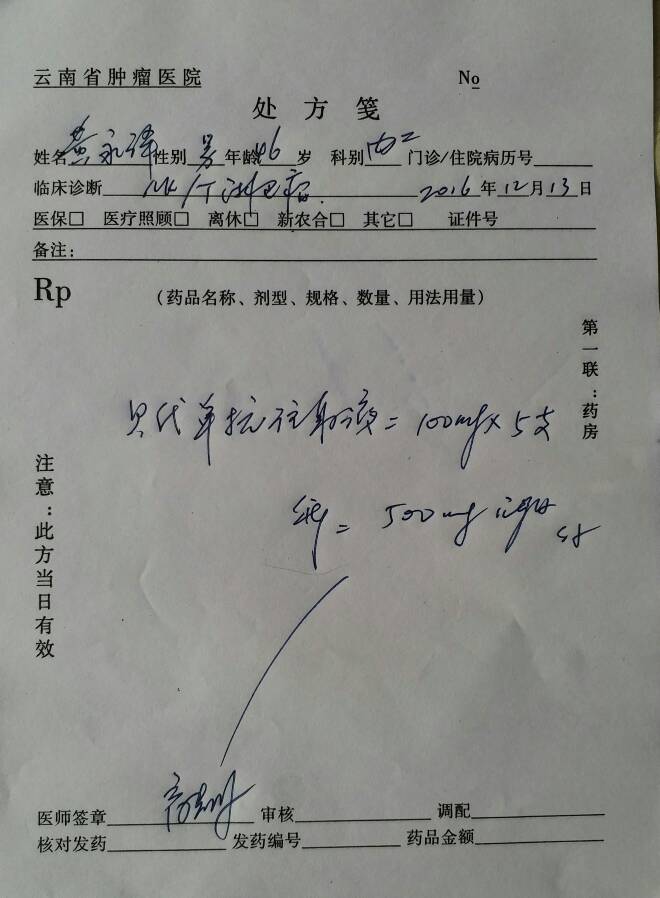 云南省肿瘤医院 No
处方笺
姓名 黄永 性别 男 年龄 46 岁 科别 内二 门诊/住院病历号
临床诊断 NK/T淋巴瘤. 2016年12月13日
医保□ 医疗照顾□ 离休□ 新农合□ 其它□ 证件号
备注:
Rp (药品名称、剂型、规格、数量、用法用量)
第一联:药房
贝伐单抗注射液 = 100mg x 5支
注意:此方当日有效
= 500mg
医师签章 审核 调配
核对发药 发药编号 药品金额